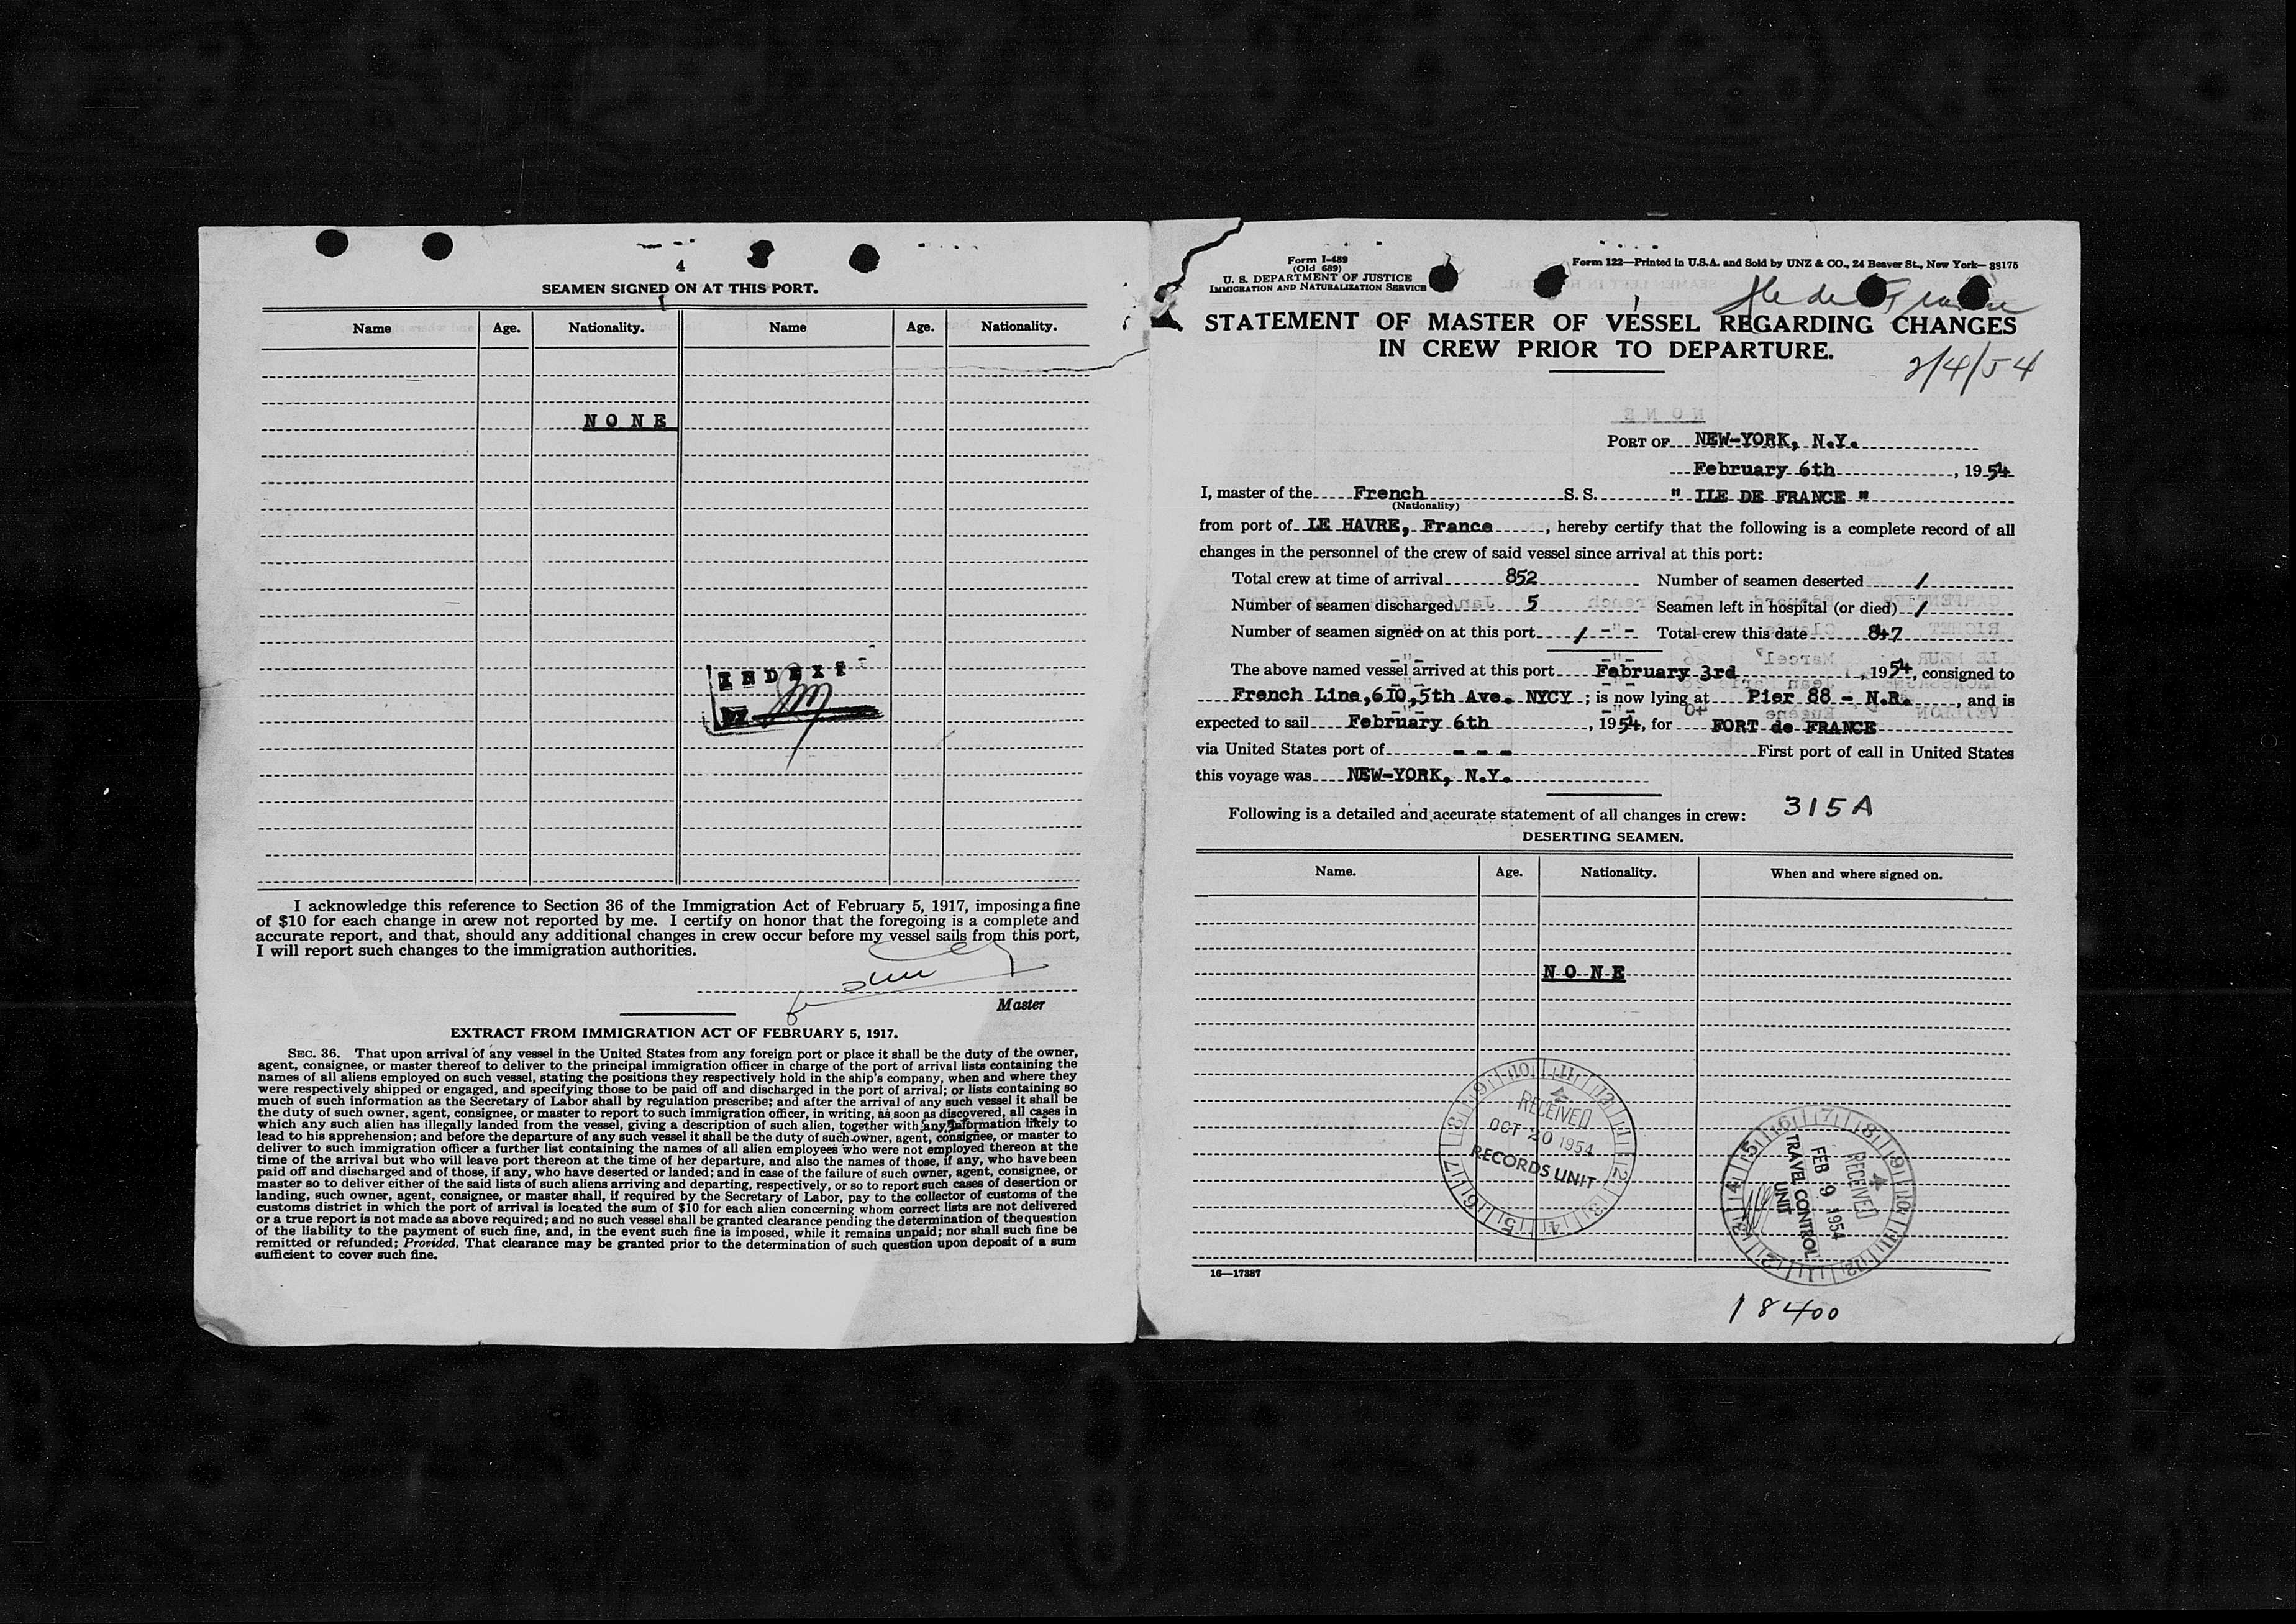 4
SEAMEN SIGNED ON AT THIS PORT.
Name Age. Nationality. Name Age. Nationality.
NONE
INDEXE
I acknowledge this reference to Section 36 of the Immigration Act of February 5, 1917, imposing a fine
of $10 for each change in crew not reported by me. I certify on honor that the foregoing is a complete and
accurate report, and that, should any additional changes in crew occur before my vessel sails from this port,
I will report such changes to the immigration authorities.
Master
EXTRACT FROM IMMIGRATION ACT OF FEBRUARY 5, 1917.
SEC. 36. That upon arrival of any vessel in the United States from any foreign port or place it shall be the duty of the owner,
agent, consignee, or master thereof to deliver to the principal immigration officer in charge of the port of arrival lists containing the
names of all aliens employed on such vessel, stating the positions they respectively hold in the ship's company, when and where they
were respectively shipped or engaged, and specifying those to be paid off and discharged in the port of arrival; or lists containing so
much of such information as the Secretary of Labor shall by regulation prescribe; and after the arrival of any such vessel it shall be
the duty of such owner, agent, consignee, or master to report to such immigration officer, in writing, as soon as discovered, all cases in
which any such alien has illegally landed from the vessel, giving a description of such alien, together with any information likely to
lead to his apprehension; and before the departure of any such vessel it shall be the duty of such owner, agent, consignee, or master to
deliver to such immigration officer a further list containing the names of all alien employees who were not employed thereon at the
time of the arrival but who will leave port thereon at the time of her departure, and also the names of those, if any, who have been
paid off and discharged and of those, if any, who have deserted or landed; and in case of the failure of such owner, agent, consignee, or
master so to deliver either of the said lists of such aliens arriving and departing, respectively, or so to report such cases of desertion or
landing, such owner, agent, consignee, or master shall, if required by the Secretary of Labor, pay to the collector of customs of the
customs district in which the port of arrival is located the sum of $10 for each alien concerning whom correct lists are not delivered
or a true report is not made as above required; and no such vessel shall be granted clearance pending the determination of the question
of the liability to the payment of such fine, and, in the event such fine is imposed, while it remains unpaid; nor shall such fine be
remitted or refunded; Provided, That clearance may be granted prior to the determination of such question upon deposit of a sum
sufficient to cover such fine.
Form I-489
(Old 689)
U. S. DEPARTMENT OF JUSTICE
IMMIGRATION AND NATURALIZATION SERVICE
Form 122—Printed in U.S.A. and Sold by UNZ & CO., 24 Beaver St., New York—38175
Ile de France
STATEMENT OF MASTER OF VESSEL REGARDING CHANGES
IN CREW PRIOR TO DEPARTURE.
2/4/54
PORT OF NEW-YORK, N.Y.
February 6th, 1954
I, master of the French S. S. " ILE DE FRANCE "
(Nationality)
from port of LE HAVRE, France, hereby certify that the following is a complete record of all
changes in the personnel of the crew of said vessel since arrival at this port:
Total crew at time of arrival 852 Number of seamen deserted /
Number of seamen discharged 5 Seamen left in hospital (or died) /
Number of seamen signed on at this port / Total crew this date 847
The above named vessel arrived at this port February 3rd, 1954, consigned to
French Line, 610, 5th Ave. NYCY ; is now lying at Pier 88 - N.R., and is
expected to sail February 6th, 1954, for FORT de FRANCE
via United States port of - - - First port of call in United States
this voyage was NEW-YORK, N.Y.
Following is a detailed and accurate statement of all changes in crew: 315A
DESERTING SEAMEN.
Name. Age. Nationality. When and where signed on.
NONE
RECEIVED
OCT 20 1954
RECORDS UNIT
RECEIVED
FEB 9 1954
TRAVEL CONTROL
UNIT
16—17387
18400